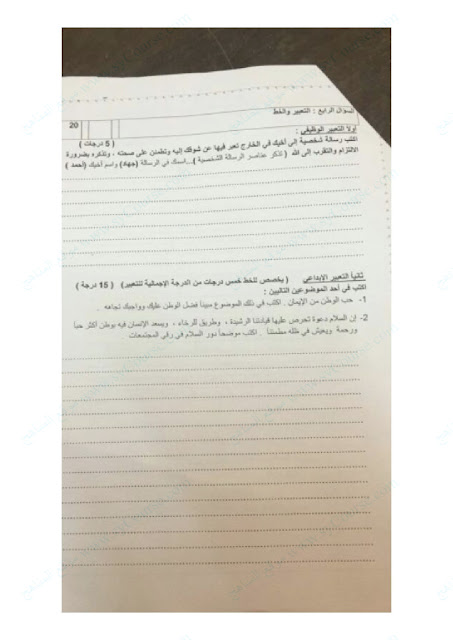 السؤال الرابع : التعبير والخط
20
أولاً التعبير الوظيفي :
اكتب رسالة شخصية إلى أخيك في الخارج تعبر فيها عن شوقك إليه وتطمئن على صحته ، وتذكره بضرورة ( 5 درجات )
الالتزام والتقرب إلى الله ( تذكر عناصر الرسالة الشخصية )...اسمك في الرسالة (جهاد) واسم أخيك (أحمد )
ثانياً التعبير الإبداعي ( يخصص للخط خمس درجات من الدرجة الإجمالية للتعبير) ( 15 درجة )
اكتب في أحد الموضوعين التاليين :
1- حب الوطن من الإيمان . اكتب في ذلك الموضوع مبيناً فضل الوطن عليك وواجبك تجاهه .
2- إن السلام دعوة تحرص عليها قيادتنا الرشيدة ، وطريق للرخاء ، ويسعد الإنسان فيه بوطن أكثر حباً
ورحمة ويعيش في ظله مطمئناً . اكتب موضحاً دور السلام في رقي المجتمعات